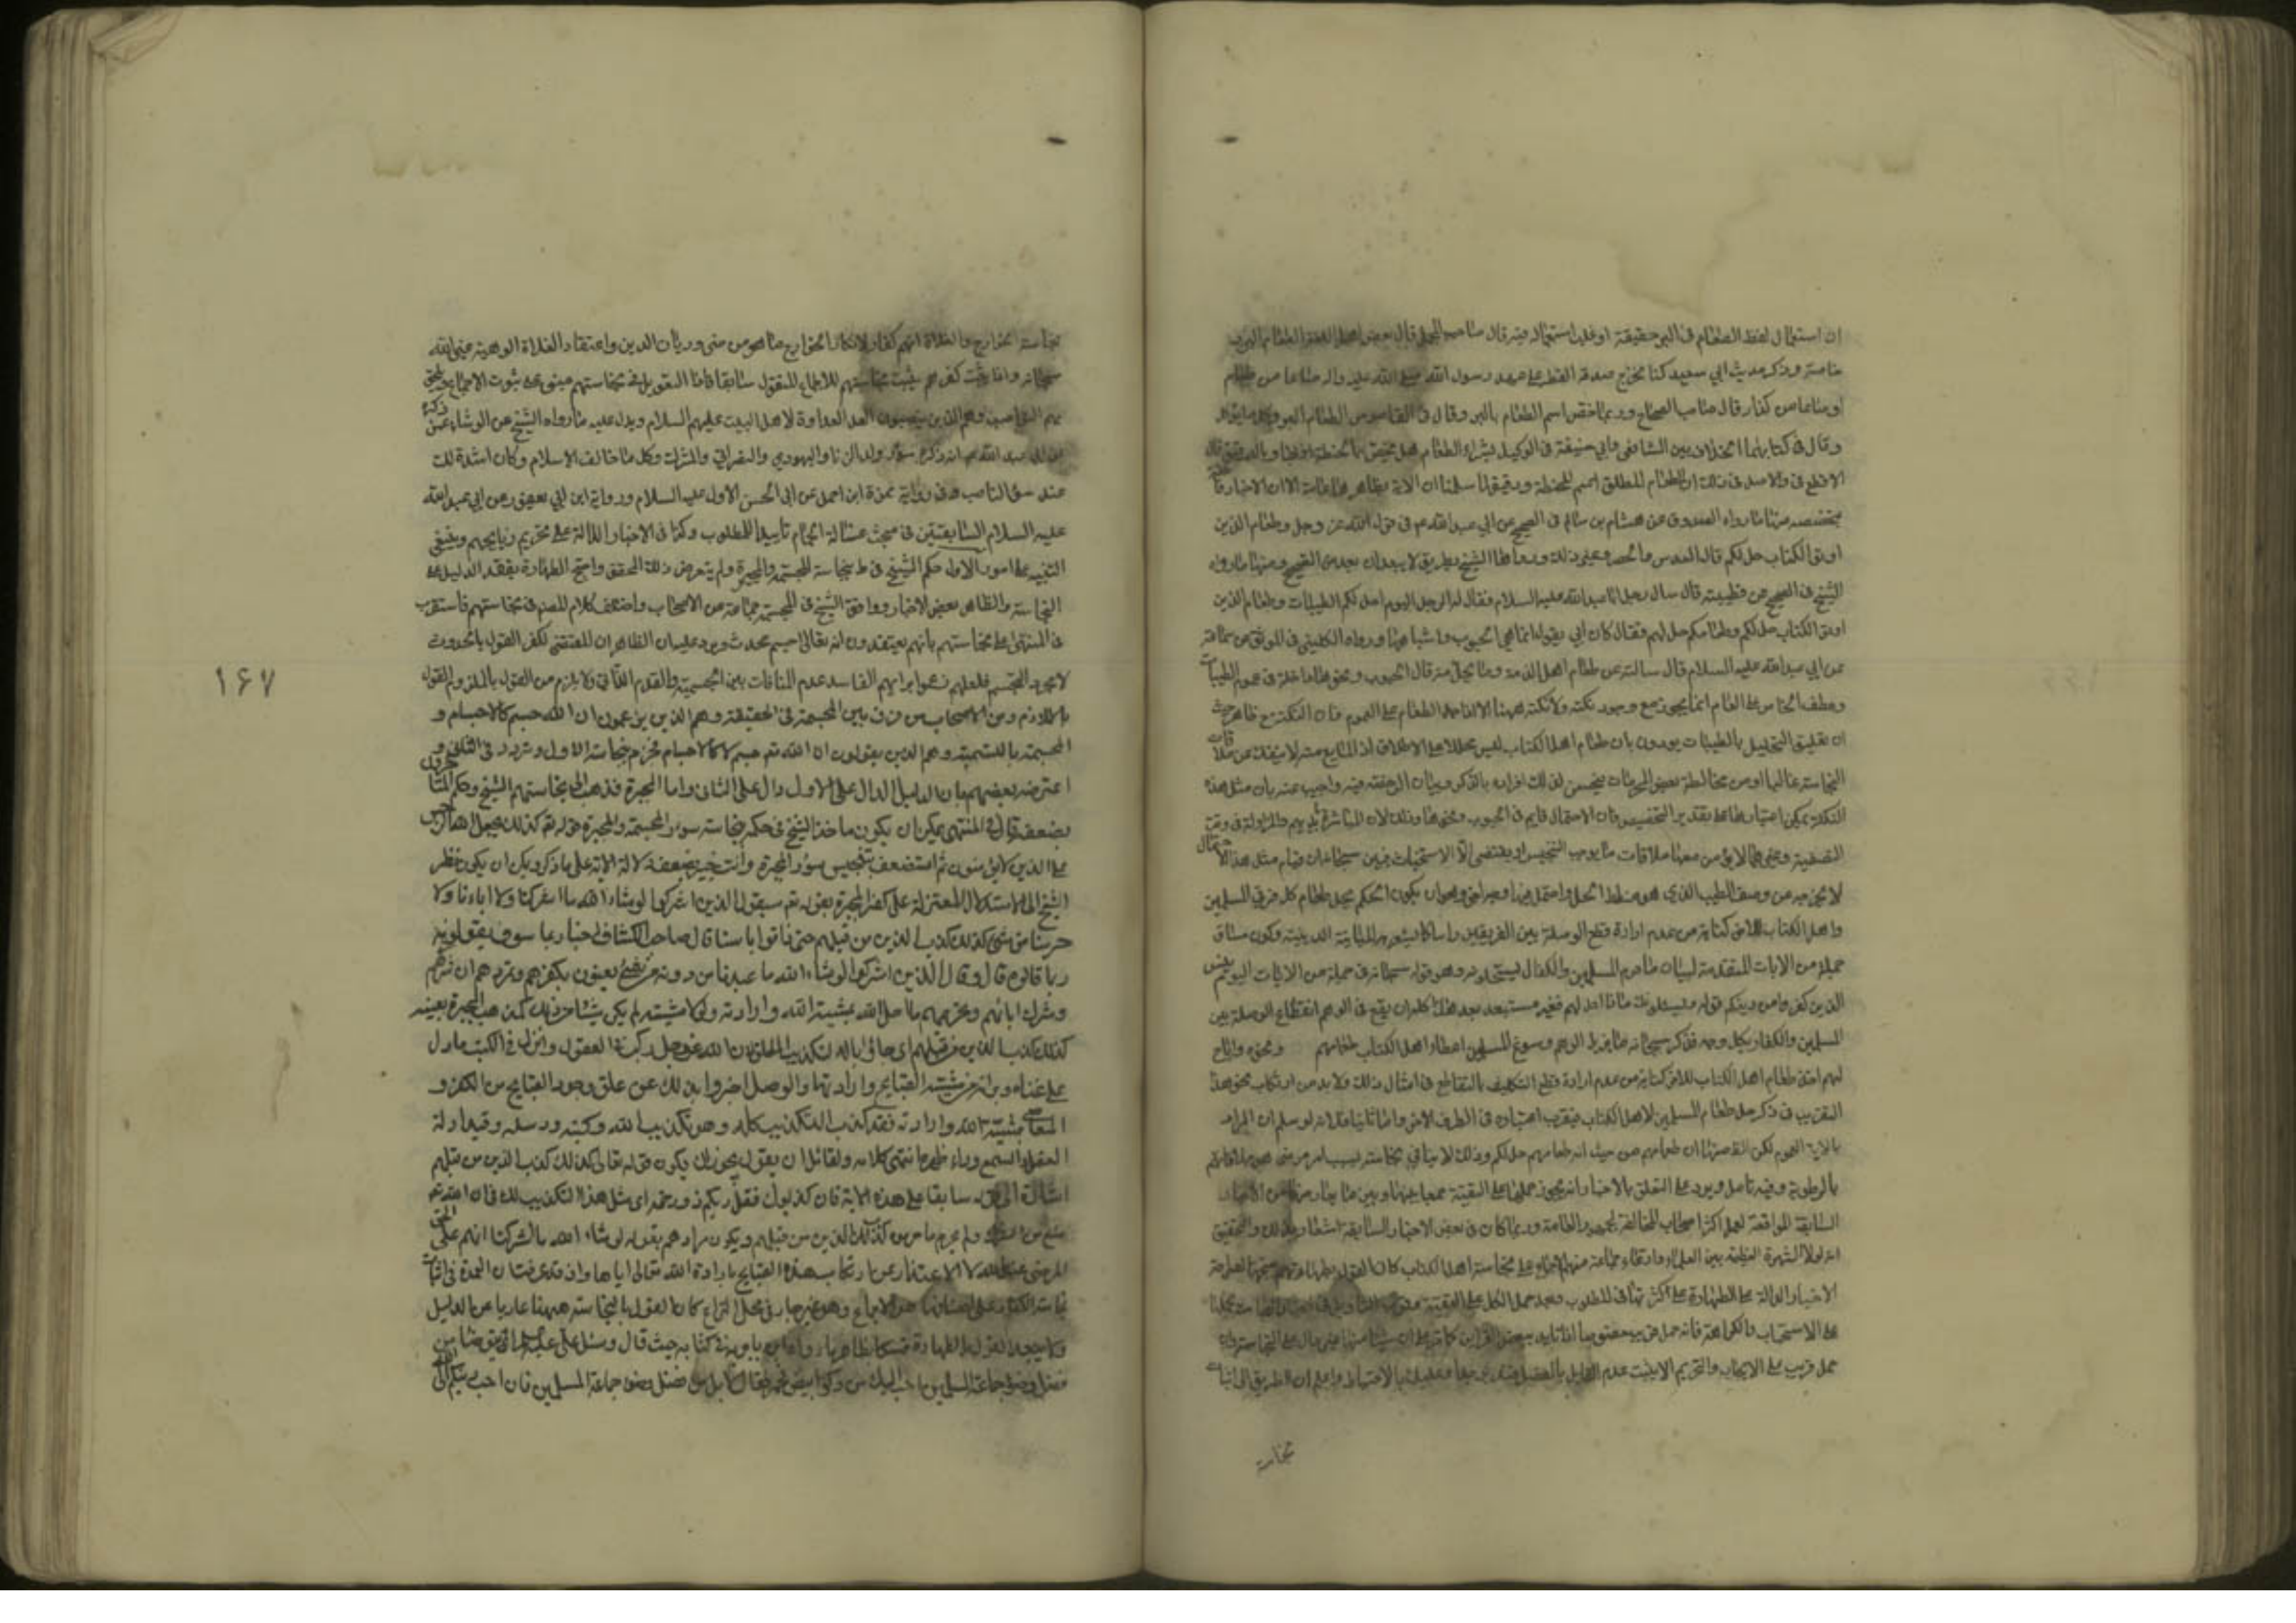 ان استعمال لفظ الطعام في البر حقيقة او غلب استعماله فيه قال صاحب المجمل قال بعض اهل اللغة الطعام البر
خاصة وذكر حديث ابي سعيد كنا نخرج صدقة الفطر على عهد رسول الله صلى الله عليه واله صاعا من طعام
او صاعا من كذا وقال صاحب الصحاح وربما خص اسم الطعام بالبر وقال في القاموس الطعام البر وكل ما يؤكل
وقال في كتابهما الخلاف بين الشافعي وابي حنيفة في الوكيل بشراء الطعام هل يختص بالحنطة
والاصل في ذلك ان الطعام المطلق اسم للحنطة ودقيقها سلمنا ان الاية بظاهر عامة الا ان الاخبار
مخصصه منها ما رواه الصدوق عن هشام بن سالم في الصحيح عن ابي عبد الله ع في قول الله عز وجل وطعام الذين
اوتوا الكتاب حل لكم قال العدس والحمص وغير ذلك ورواها الشيخ بطريق لا يبعد ان يعد من الصحيح ومنها ما رواه
الشيخ في الصحيح عن قطيبة قال سال رجل ابا عبد الله عليه السلام فقال له الرجل اليوم احل لكم الطيبات وطعام الذين
اوتوا الكتاب حل لكم وطعامكم حل لهم فقال كان ابي يقول انما هي الحبوب واشباهها ورواه الكليني في الموثق عن سماعة
عن ابي عبد الله عليه السلام قال سالته عن طعام اهل الذمة وما يحل منه قال الحبوب ونحوها داخلة في عموم الطيبات
وعطف الخاص على العام انما يجوز مع وجود نكتة ولا نكتة ههنا الا الطعام على العموم فان النكتة ح ظاهرة حيث
ان تعليق التحليل بالطيبات يوذن بان طعام اهل الكتاب ليس محللا على الاطلاق اذ المايع منه لا ينفك عن ملاقات
النجاسة غالبا او من مخالطة بعض المحرمات فيحسن لذلك افراده بالذكر وبيان الرخصة فيه واجيب عنه بان مثل هذه
النكتة يمكن اعتبارها على تقدير التخصيص فان الاحتمال قايم في الحبوب ونحوها وذلك لان المباشرة بايديهم والمزاولة في وقت
التصفية وغيرها لا يؤمن معها ملاقات ما يوجب التنجيس او يقتضي الاستخباث فبين سبحانه ان قيام مثل هذا الاحتمال
لا يخرجه عن وصف الطيب الذي هو مناط الحل واحتمل فيه اوجه اخر وهو ان يكون الحكم بحل طعام كل فريق المسلمين
واهل الكتاب للاخر كناية عن عدم ارادة قطع الوصلة بين الفريقين راسا كما يشعر به المباينة الدينية وكون مساق
جملة من الايات المتقدمة لبيان ما حرم المسلمين والكفار يستحلونه وهو قوله سبحانه في جملة من الايات اليوم يئس
الذين كفروا من دينكم قوله ويسئلونك ماذا احل لهم فغير مستبعد بعد هذا كله ان يقع في الوهم انقطاع الوصلة بين
المسلمين والكفار بكل وجه فذكر سبحانه ما يدفع الوهم وسوغ للمسلمين اعطاء اهل الكتاب طعامهم ونحوه واباح
لهم اخذ طعام اهل الكتاب للاخر كناية عن عدم ارادة قطع التكليف بالتقاطع في امثال ذلك ولا بد من ارتكاب نحو هذا
التقريب في ذكر حل طعام المسلمين لاهل الكتاب فيقرب اعتباره في الطرف الاخر واما ثانيا فلانه لو سلم ان المراد
بالاية العموم لكن اقصاها ان طعامهم من حيث انه طعامهم حل لكم وذلك لا ينافي نجاسته بسبب امر عرضي هو ملاقاتهم
بالرطوبة وفيه تامل ويرد على التعلق بالاخبار انه يجوز حملها على التقية جمعا بينها وبين ما يعارضها من الاخبار
السابقة الموافقة لعمل اكثر اصحاب المخالفة لجمهور العامة وربما كان في بعض الاخبار السابقة اشعار بذلك والتحقيق
انه لولا الشهرة العظيمة بين العلماء وادعاء جماعة منهم الاجماع على نجاسة اهل الكتاب كان القول بطهارتهم متجها لصراحة
الاخبار الدالة على الطهارة على كثرتها في المطلوب وبعد حمل الكل على التقية
على الاستحباب والكراهة فانه حمل قريب
حمل قريب على الايجاب والتحريم الا يثبت عدم القايل بالفصل وعليك بالاحتياط واعلم ان الطريق الى اثبات
نجاسة
نجاسة الخوارج والغلاة انهم كفار لانكار الخوارج ما هو من ضروريات الدين واعتقاد الغلاة الوهية غير الله
سبحانه واذا ثبت كفرهم يثبت نجاستهم للاجماع المنقول سابقا فاذا التعويل في نجاستهم مبني على ثبوت الاجماع ويلحق
بهم النواصب وهم الذين ينصبون العداوة لاهل البيت عليهم السلام ويدل عليه ما رواه الشيخ عن الوشاء عمن ذكره
عن ابي عبد الله ع انه كره سؤر ولد الزنا واليهودي والنصراني والمشرك وكل ما خالف الاسلام وكان اشد ذلك
عنده سؤر الناصب وفي رواية حمزة ابن احمد عن ابي الحسن الاول عليه السلام ورواية ابن ابي يعفور عن ابي عبد الله
عليه السلام السابقتين في مبحث غسالة الحمام تاييد للمطلوب وكذا في الاخبار الدالة على تحريم ذبايحهم وينبغي
التنبيه على امور الاول حكم الشيخ في ط بنجاسة المجسمة والمجبرة ولم يتعرض ذلك المحقق واحتج الطهارة بفقد الدليل على
النجاسة والظاهر بعض الاخبار ووافق الشيخ في المجسمة جماعة من الاصحاب واختلف كلام المص في نجاستهم فاستقرب
في المنتهى على نجاستهم بانهم يعتقدون انه تعالى جسم محدث ويرد عليه ان الظاهر ان المقتضي لكفر القول بالحدوث
لا مجرد التجسيم فلعلهم زعموا برايهم الفاسد عدم المنافات بين الجسمية والقدم الذاتي ولا يلزم من القول بالملزوم القول
باللازم ومن الاصحاب من فرق بين المجسمة في الحقيقة وهم الذين يزعمون ان الله جسم كالاجسام و
المجسمة بالتسمية وهم الذين يقولون ان الله تع جسم لا كالاجسام فجزم بنجاسة الاول وتردد في الثاني و
اعترضه بعضهم بان الدليل الدال على الاول دال على الثاني واما المجبرة فذهب الى نجاستهم الشيخ وحكم المتاخرون
بضعفه قال في المنتهى يمكن ان يكون ماخذ الشيخ في حكمه بنجاسة سؤر المجسمة والمجبرة قوله تع كذلك يجعل الله الرجس
على الذين لا يؤمنون ثم استضعف تنجيس سؤر المجبرة وانت خبير بضعف دلالة الاية على ما ذكر ويمكن ان يكون نظر
الشيخ الى الاستدلال المعتزلة على كفر المجبرة بقوله تع سيقول الذين اشركوا لو شاء الله ما اشركنا ولا اباءنا ولا
حرمنا من شيء كذلك كذب الذين من قبلهم حتى ذاقوا باسنا قال صاحب الكشاف اخبار بما سوف يقولونه
ولما قالوه قال وقال الذين اشركوا لو شاء الله ما عبدنا من دونه من شيء يعنون بكفرهم وتمردهم ان شركهم
وشرك ابائهم وتحريمهم ما احل الله بمشية الله وارادته ولولا مشيته لم يكن شيئا من ذلك كمذهب المجبرة بعينه
كذلك كذب الذين من قبلهم اي جاؤا بالتكذيب المطلق لان الله عز وجل ركب في العقول وانزل في الكتب ما دل
على غناه وبراءته من مشية القبايح وارادتها والرسل اخبروا بذلك عن علق وجود القبايح من الكفر و
المعاصي بمشية الله وارادته فقد كذب التكذيب كله وهو تكذيب الله وكتبه ورسله ونبذ ادلة
العقل والسمع وراء ظهره انتهى كلامه ولقائل ان يقول يجوز ان يكون قوله تعالى كذلك كذب الذين من قبلهم
اشارة الى قوله سابقا على هذه الاية فان كذبوك فقل ربكم ذو رحمة اي مثل هذا التكذيب لك فان الله تع
منع من الشرك ولم يحرم ما حرموه كذلك كذب الذين من قبلهم ويكون مرادهم بقوله لو شاء الله ما اشركنا انهم على الحق
المرضي عند الله لا الاعتذار عن ارتكاب هذه القبايح بارادة الله تعالى اياها واذ قد عرفت ان العمدة في اثبات
نجاسة الكفار على اصنافها هو الاجماع وهو غير جار في محل النزاع كان القول بالنجاسة ههنا عاريا عن الدليل
ولا يبعد القول بالطهارة تمسكا بظاهر ما رواه ابن بابويه في كتابه حيث قال وسئل علي عليه السلام ايتوضا من
فضل وضوء جماعة المسلمين احب اليك من ركو ابيض مخمر فقال لا بل من فضل وضوء جماعة المسلمين فان احب دينكم الى الله
١٦٧